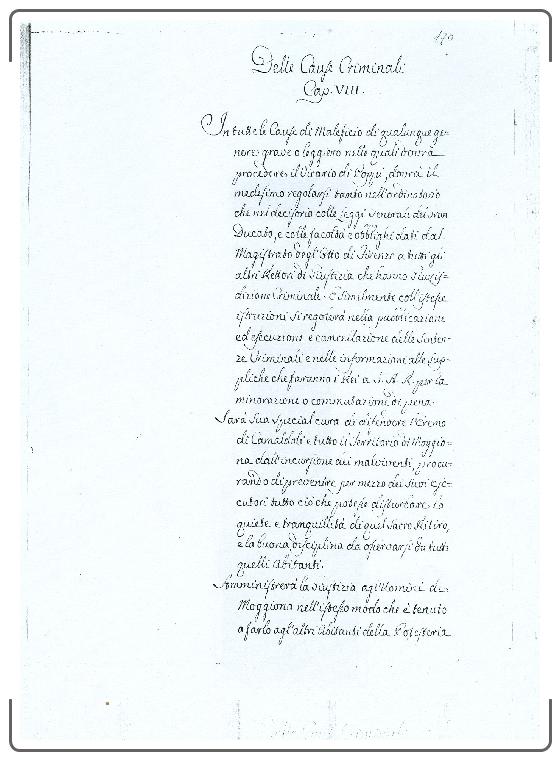 170
Delle Cause Criminali
Cap. VIII.
In tutte le Cause di Maleficio di qualunque ge-
nere, grave o leggiero nelle quali dovrà
procedere il Vicario di Poppi, dovrà il
medesimo regolarsi tanto nell'ordinatorio
che nel decisorio colle Leggi Generali del Gran
Ducato, e colle facoltà e obblighi dati dal
Magistrato degl'Otto di Firenze a tutti gli
altri Rettori di Giustizia che hanno Giuris-
dizione Criminale. E similmente coll'istesse
istruzioni si regolerà nella pubblicazione
ed esecuzione e cancellazione delle Senten-
ze Criminali e nelle informazioni alle sup-
pliche che faranno i Rei a S. A. R. per la
minorazione o commutazione di pena.
Sarà sua special cura di difendere l'Eremo
di Camaldoli e tutto il Territorio di Moggio-
na dall'incursione dei malviventi, procu-
rando di prevenire per mezzo dei suoi ese-
cutori tutto ciò che potesse disturbare la
quiete e tranquillità di quel Sacro Ritiro,
e la buona disciplina da osservarsi da tutti
quelli Abitanti.
Amministrerà la Giustizia agl'Uomini di
Moggiona nell'istesso modo che è tenuto
a farlo agl'altri Abitanti della Potesteria